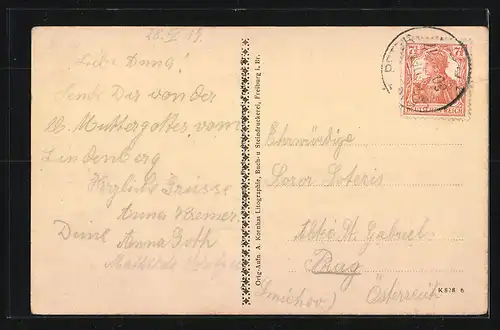 28.V.19.
Liebe Anna!
Sende Dir von der
lb. Muttergottes vom
Lindenberg
Herzliche Grüsse
Anna Kremer
Deine Anna Goth
Mathilde
Orig.-Aufn. A. Kornhas Litographie, Buch- u Steindruckerei, Freiburg i. Br.
7½ 7½
REICH
Ehrwürdige
Soror Soteris
Abtei St. Gabriel
Prag
(Smichov) Österreich
K 828 b